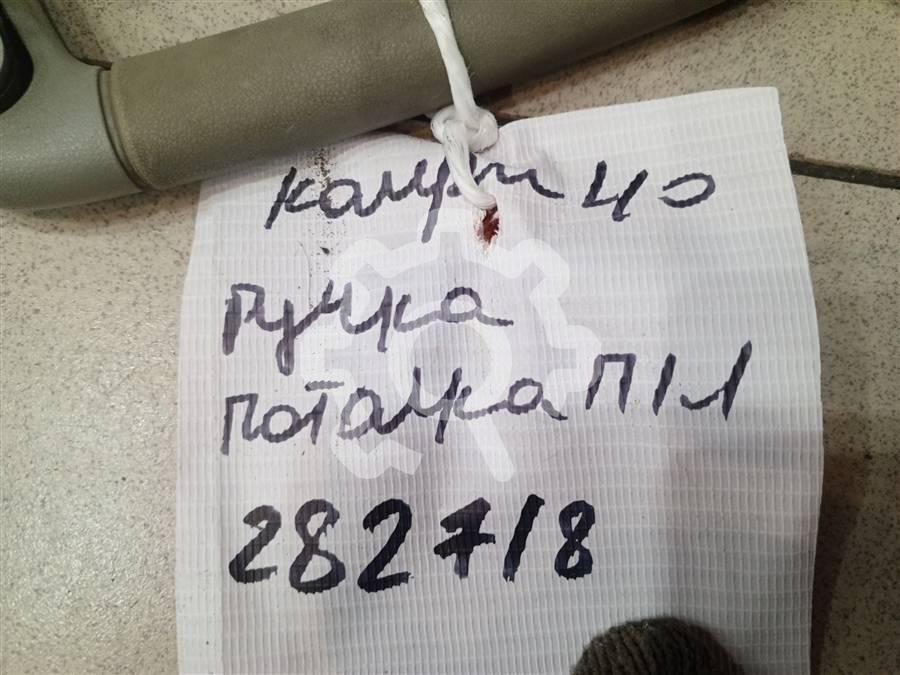 Камри 40
Ручка
потолка П/Л
2827/8